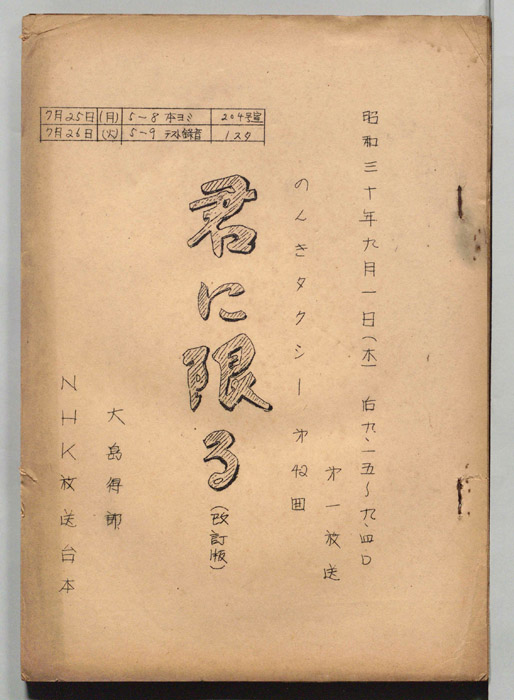 7月25日(月) 5〜8 本ヨミ 204号室
7月26日(火) 5〜9 テスト録音 1スタ
昭和三十年九月一日(木) 后九、一五〜九、四〇
第一放送
のんきタクシー 第 回
君に限る
(改訂版)
大島得郎
NHK放送台本